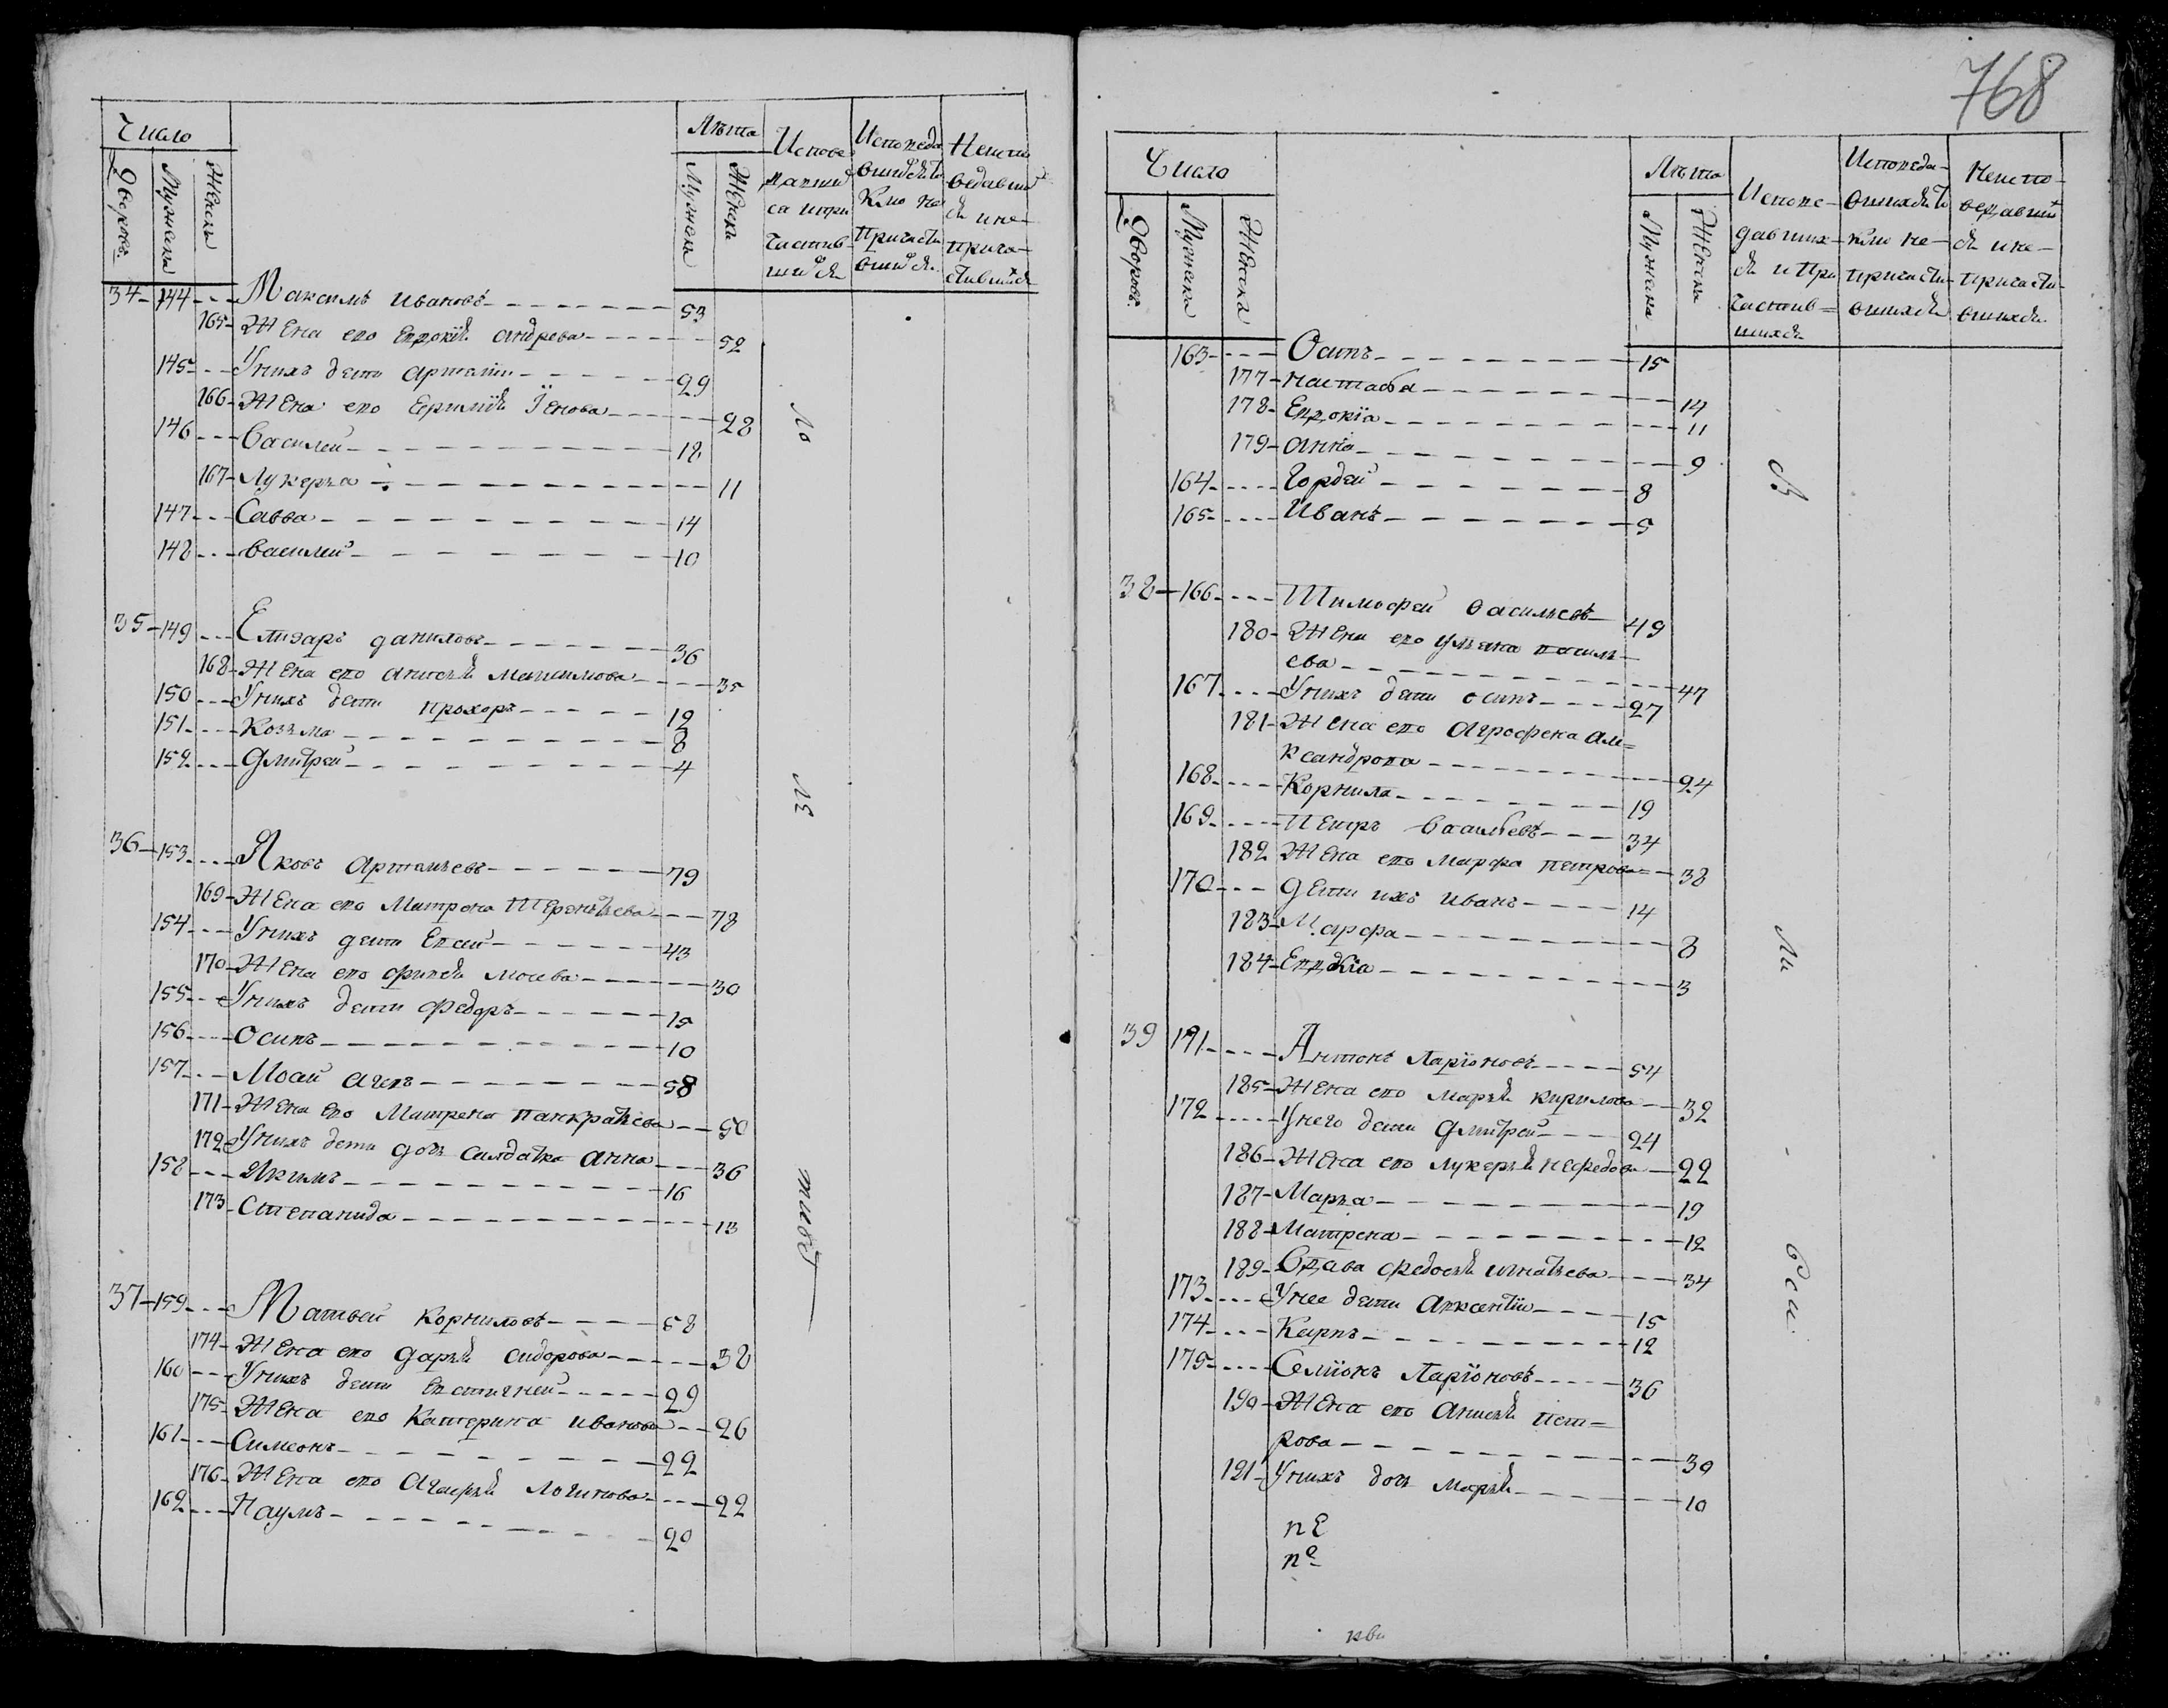 Число
Лѣта
Дворовъ
Мужеска
Женска
Мужска
Женска
Исповедавшихся и причастившихся
Исповедавшихся токмо не причастившихся
Неисповедавшихся и не причастившихся
34 144 Максимъ Ивановъ 53
165 Жена его Евдокія Андрева 52
145 У нихъ дети Артемій 29
166 Жена его 28
146 Василей 18
167 Лукерья 11
147 Савва 14
148 Василей 10
35 149 Елизаръ Даниловъ 36
168 Жена его Анисья Максимова 35
150 У нихъ дети Прохоръ 12
151 Козьма 8
152 Дмитрей 4
36 153 Яковъ Артемьевъ 79
169 Жена его Матрена Терентьева 78
154 У нихъ дети 43
170 Жена его 30
155 У нихъ дети Федоръ 15
156 Осипъ 10
157 Мосей 58
171 Жена его Матрена Панкратьева 50
172 У нихъ дети дочь салдатка Анна 36
158 Якимъ 16
173 Степанида 13
37 159 Матвей Корниловъ 58
174 Жена его Дарья Сидорова 38
160 У нихъ дети Евстигней 29
175 Жена его Катерина Иванова 26
161 Симеонъ 22
176 Жена его Агафья Логинова 22
162 Наумъ 20
768
Число
Лѣта
Дворовъ
Мужеска
Женска
Мужеска
Женска
Исповедавшихся и причастившихся
Исповедавшихся токмо не причастившихся
Неисповедавшихся и не причастившихся
163 Осипъ 15
177 Настасья 14
178 Евдокіа 11
179 Анна 9
164 Гордей 8
165 Иванъ 5
38 166 Тимофей Васильевъ 49
180 Жена его Ульяна Василь-
ева 47
167 У нихъ дети Осипъ 27
181 Жена его Аграфена Але-
ксандрова 24
168 Корнила 19
169 Петръ Васильевъ 34
182 Жена его Марфа Петрова 38
170 Дети ихъ Иванъ 14
183 Марфа 8
184 Евдокіа 3
39 171 Антонъ Ларіоновъ 54
185 Жена его Марья Кирилова 32
172 У него дети Дмитрей 24
186 Жена его Лукерья Нефедова 22
187 Марья 19
188 Матрена 12
189 Вдава Федосья Игнатьева 34
173 У нее дети Авксентіи 15
174 Карпъ 12
175 Семіонъ Ларіоновъ 36
190 Жена его Анисья Пет-
рова 30
191 У нихъ дочь Марья 10